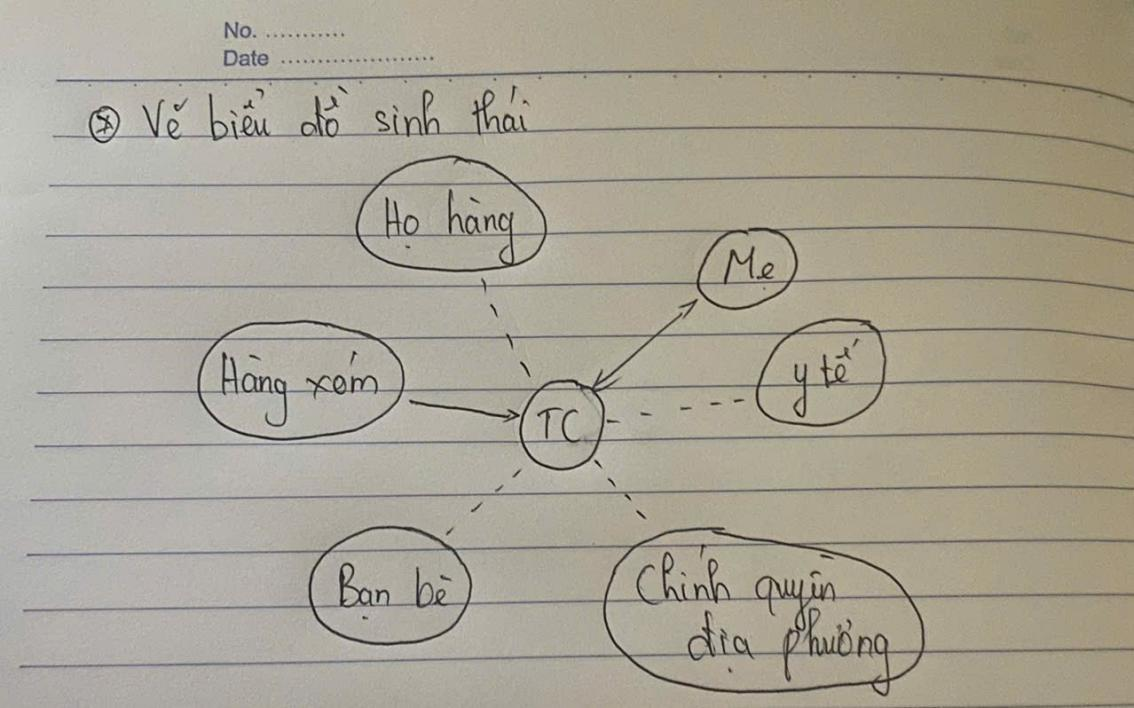 No. ...........
Date ......................
* Vẽ biểu đồ sinh thái
Họ hàng
Mẹ
y tế
Hàng xóm
TC
Bạn bè
Chính quyền
địa phương